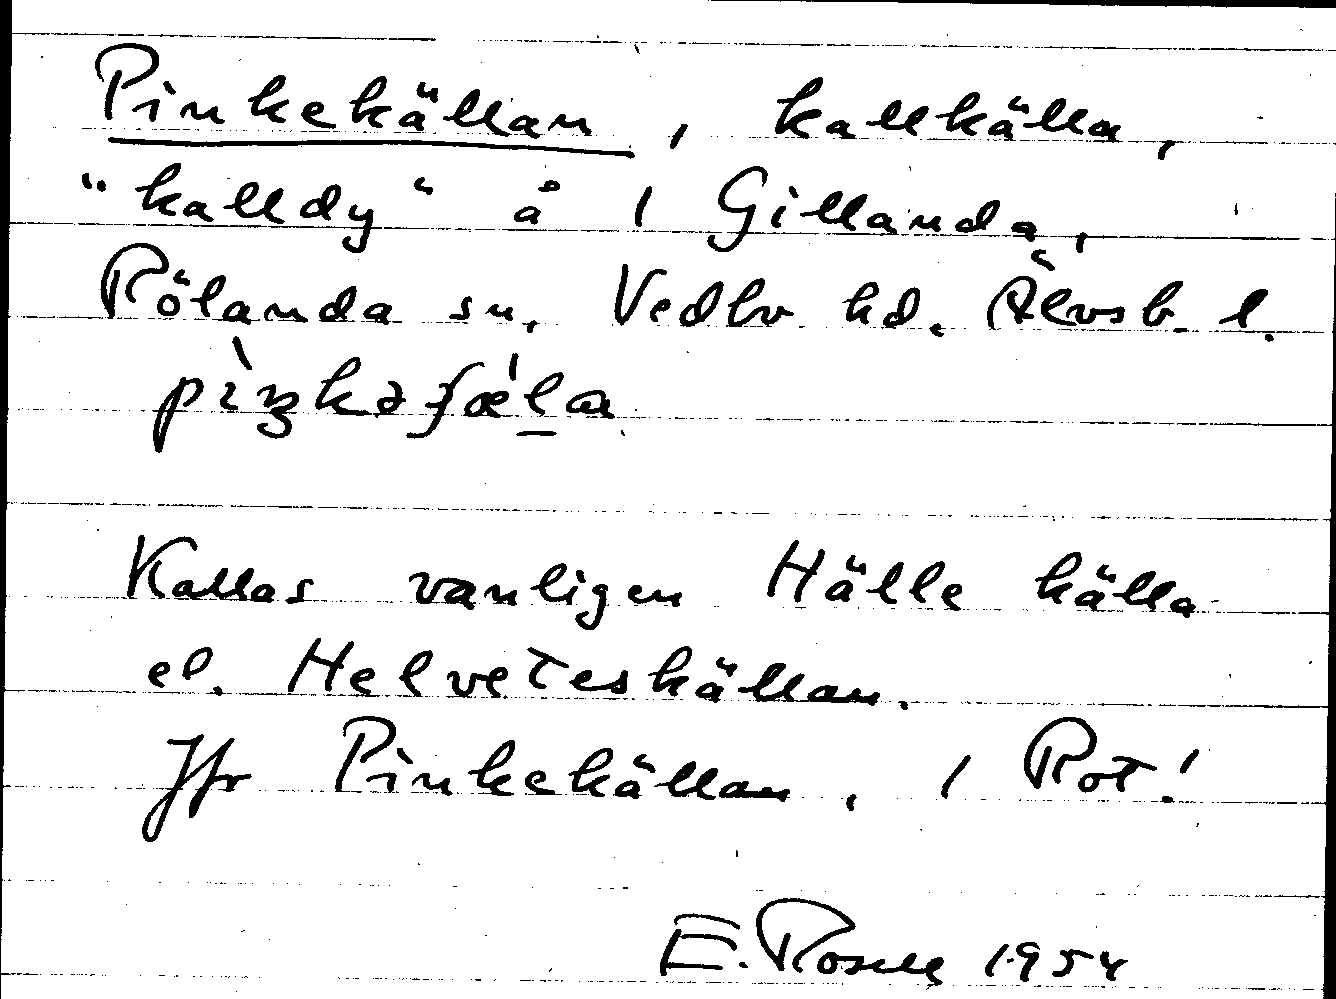 Pinkekällan, kallkälla,
"kalldy" å 1 Gillanda,
Rölanda sn, Vedbo hd. Älvsb. l.
Kallas vanligen Hälle källa
el. Helveteskällan.
Jfr Pinkekällan, 1 Rot!
E. Rosell 1954